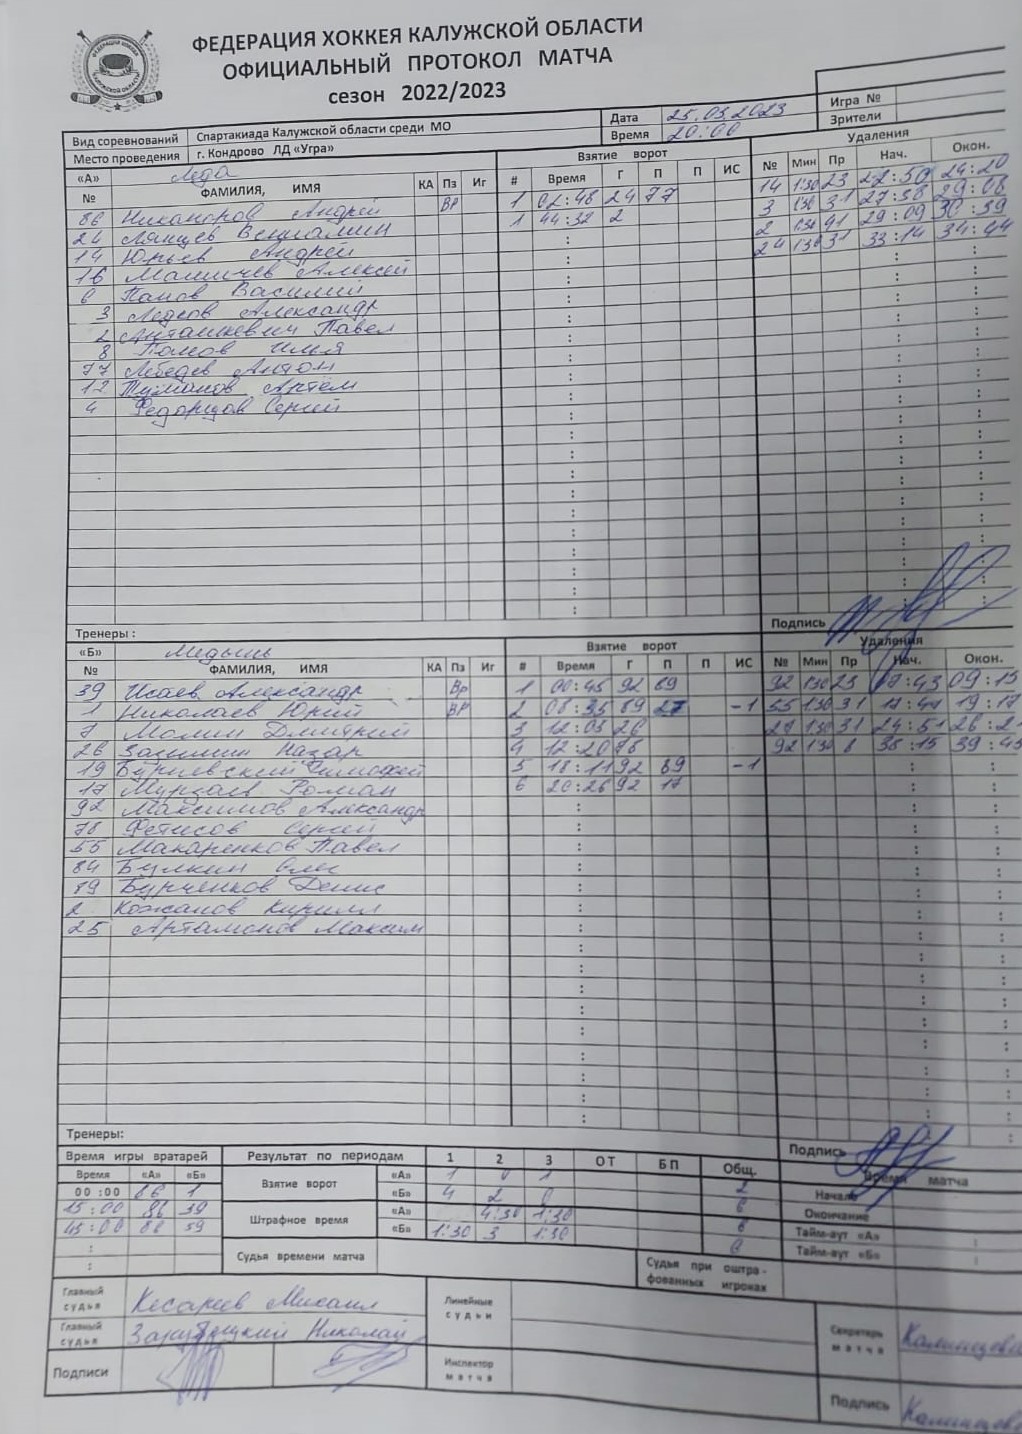 ФЕДЕРАЦИЯ ХОККЕЯ КАЛУЖСКОЙ ОБЛАСТИ
ОФИЦИАЛЬНЫЙ ПРОТОКОЛ МАТЧА
сезон 2022/2023
Вид соревнований Спартакиада Калужской области среди МО Дата 25.03.2023 Игра №
Место проведения г. Кондрово ЛД «Угра» Время 20:00 Зрители
«А» Леда Взятие ворот Удаления
№ ФАМИЛИЯ, ИМЯ КА Пз Иг # Время Г П П ИС № Мин Пр Нач. Окон.
86 Никаноров Андрей ВР 1 02:48 24 77 14 1:30 23 22:50 24:20
24 Лянцев Вениамин 1 44:32 2 3 1:30 31 27:38 29:08
14 Юрьев Андрей : 2 1:30 41 29:09 30:39
16 Малинчев Алексей : 24 1:30 31 33:14 34:44
6 Панов Василий
3 Ледков Александр
2 Анташкевич Павел
8 Попов Илья
77 Лебедев Антон
12 Туманов Артём
4 Федорцов Сергей
Тренеры : Подпись
«Б» Медынь Взятие ворот Удаления
№ ФАМИЛИЯ, ИМЯ КА Пз Иг # Время Г П П ИС № Мин Пр Нач. Окон.
39 Исаев Александр Вр 1 00:45 92 89 92 1:30 23 09:15
1 Николаев Юрий ВР 2 08:35 89 27 -1 55 1:30 31 19:17
7 Момин Дмитрий 3 12:03 26 27 1:30 31 24:51
26 Засимин Назар 4 12:20 78 92 1:30 8 38:15 39:45
19 Тимофей 5 18:11 92 89 -1
17 Мурзаев Роман 6 20:26 92 17
92 Максимов Александр
78 Фетисов Сергей
55 Макаренков Павел
84 Булкин Олег
89 Бурченков Денис
2 Кожанов Кирилл
25 Артамонов Максим
Тренеры: Подпись
Время игры вратарей Результат по периодам 1 2 3 ОТ БП Общ. Время матча
Время «А» «Б» Взятие ворот «А» 1 0 1 2 Начало
00:00 86 1 «Б» 4 2 0 6 Окончание
15:00 86 39 Штрафное время «А» 4:30 1:30 6 Тайм-аут «А»
45:00 86 39 «Б» 1:30 3 1:30 Тайм-аут «Б»
Судья времени матча Судья при оштрафованных игроках
Главный судья Кесарев Михаил Линейные судьи
Главный судья Николай Секретарь матча
Подписи Инспектор матча Подпись